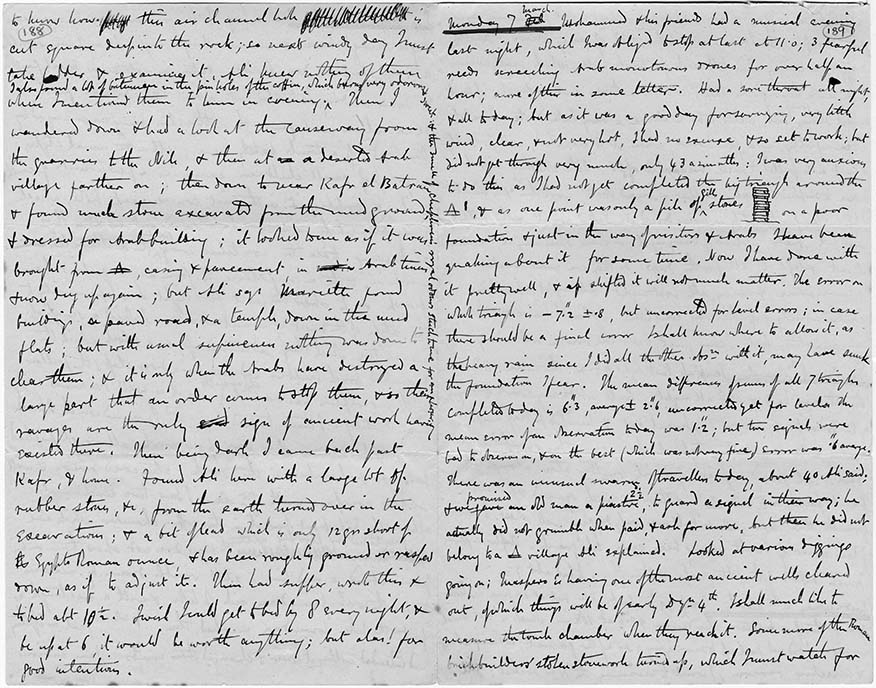 188
to know how this air channel hole is
cut square deep into the rock; so next windy day I must
take ladder, & examine it. Ali knew nothing of them
I also found a lot of in the pin holes of the coffin, which
when I mentioned them to him in evening. Then I
wandered down & had a look at the causeway from
the granaries to the Nile, & then at a deserted Arab
village farther on; then down to near Kafr el Batran
& found much stone excavated from the mud ground
& dressed for Arab building; it looked to me as if it was
brought from Δ, casing & pavement, in Arab times
& now dug up again; but Ali says Mariette found
buildings, a paved road, & a temple, down in the mud
flats; but with usual supineness nothing was done to
clear them; & it is only when the Arabs have destroyed a
large part that an order comes to stop them, & so their
ravages are the only sign of ancient work having
existed there. Then being dark I came back past
Kafr & home. Found Ali here with a large lot of
rubber stones, &c, from the earth turned over in the
excavations; & a bit of lead which is only 12 grs short of
Egypto Roman ounce, & has been roughly ground or rasped
down, as if to adjust it. Then had supper, wrote this &
to bed abt 10½. I wish I could get to bed by 8 every night, &
be up at 6, it would be worth anything; but alas! for
good intentions.
189
Monday 7 March. Mohammed & his friends had a musical evening
last night, which I was oblig'd to stop at last at 11.0; 3 fearful
reeds screeching Arab monotonous drones for over half an
hour; more of this in some letters. Had a sore throat all night,
& all to day; but as it was a good day for surveying, very little
wind, clear, & not very hot, I had no excuse, & so set to work; but
did not get through very much, only 43 azimuths. I was very anxious
to do this as I had not yet completed the big triangle around the
Δ¹, & as one point was only a pile of stones on a poor
foundation & just in the way of visitors & Arabs I have been
quaking about it for some time. Now I have done with
it pretty well, & if shifted it will not much matter. The error on
which triangle is −7".2 ± .8, but uncorrected for level errors; in case
there should be a final error I shall know where to allow it, as
the heavy rain since I did all the other obsns with it, may have sunk
the foundation I fear. The mean difference of sums of all 7 triangles
completed to day is 6".3, average ± 2".6, uncorrected yet for levels. The
mean error of an observation to day was 1".2; but two signals were
bad to observe on, & on the best (which was only fine) error was ".6 average.
There was an unusual swarm of travellers to day, about 40 Ali said;
& we promised an old man a piastre, 2½, to guard a signal in their way; he
actually did not grumble when paid, & ask for more, but then he did not
belong to a Δ village Ali explained. Looked at various diggings
going on; Maspero is having one of the most ancient wells cleared
out, of which things will be of early Dyn 4th. I shall much like to
measure the tomb chamber when they reach it. Some more of the Roman
brickbuilders' stolen stonework turned up, which I must watch for